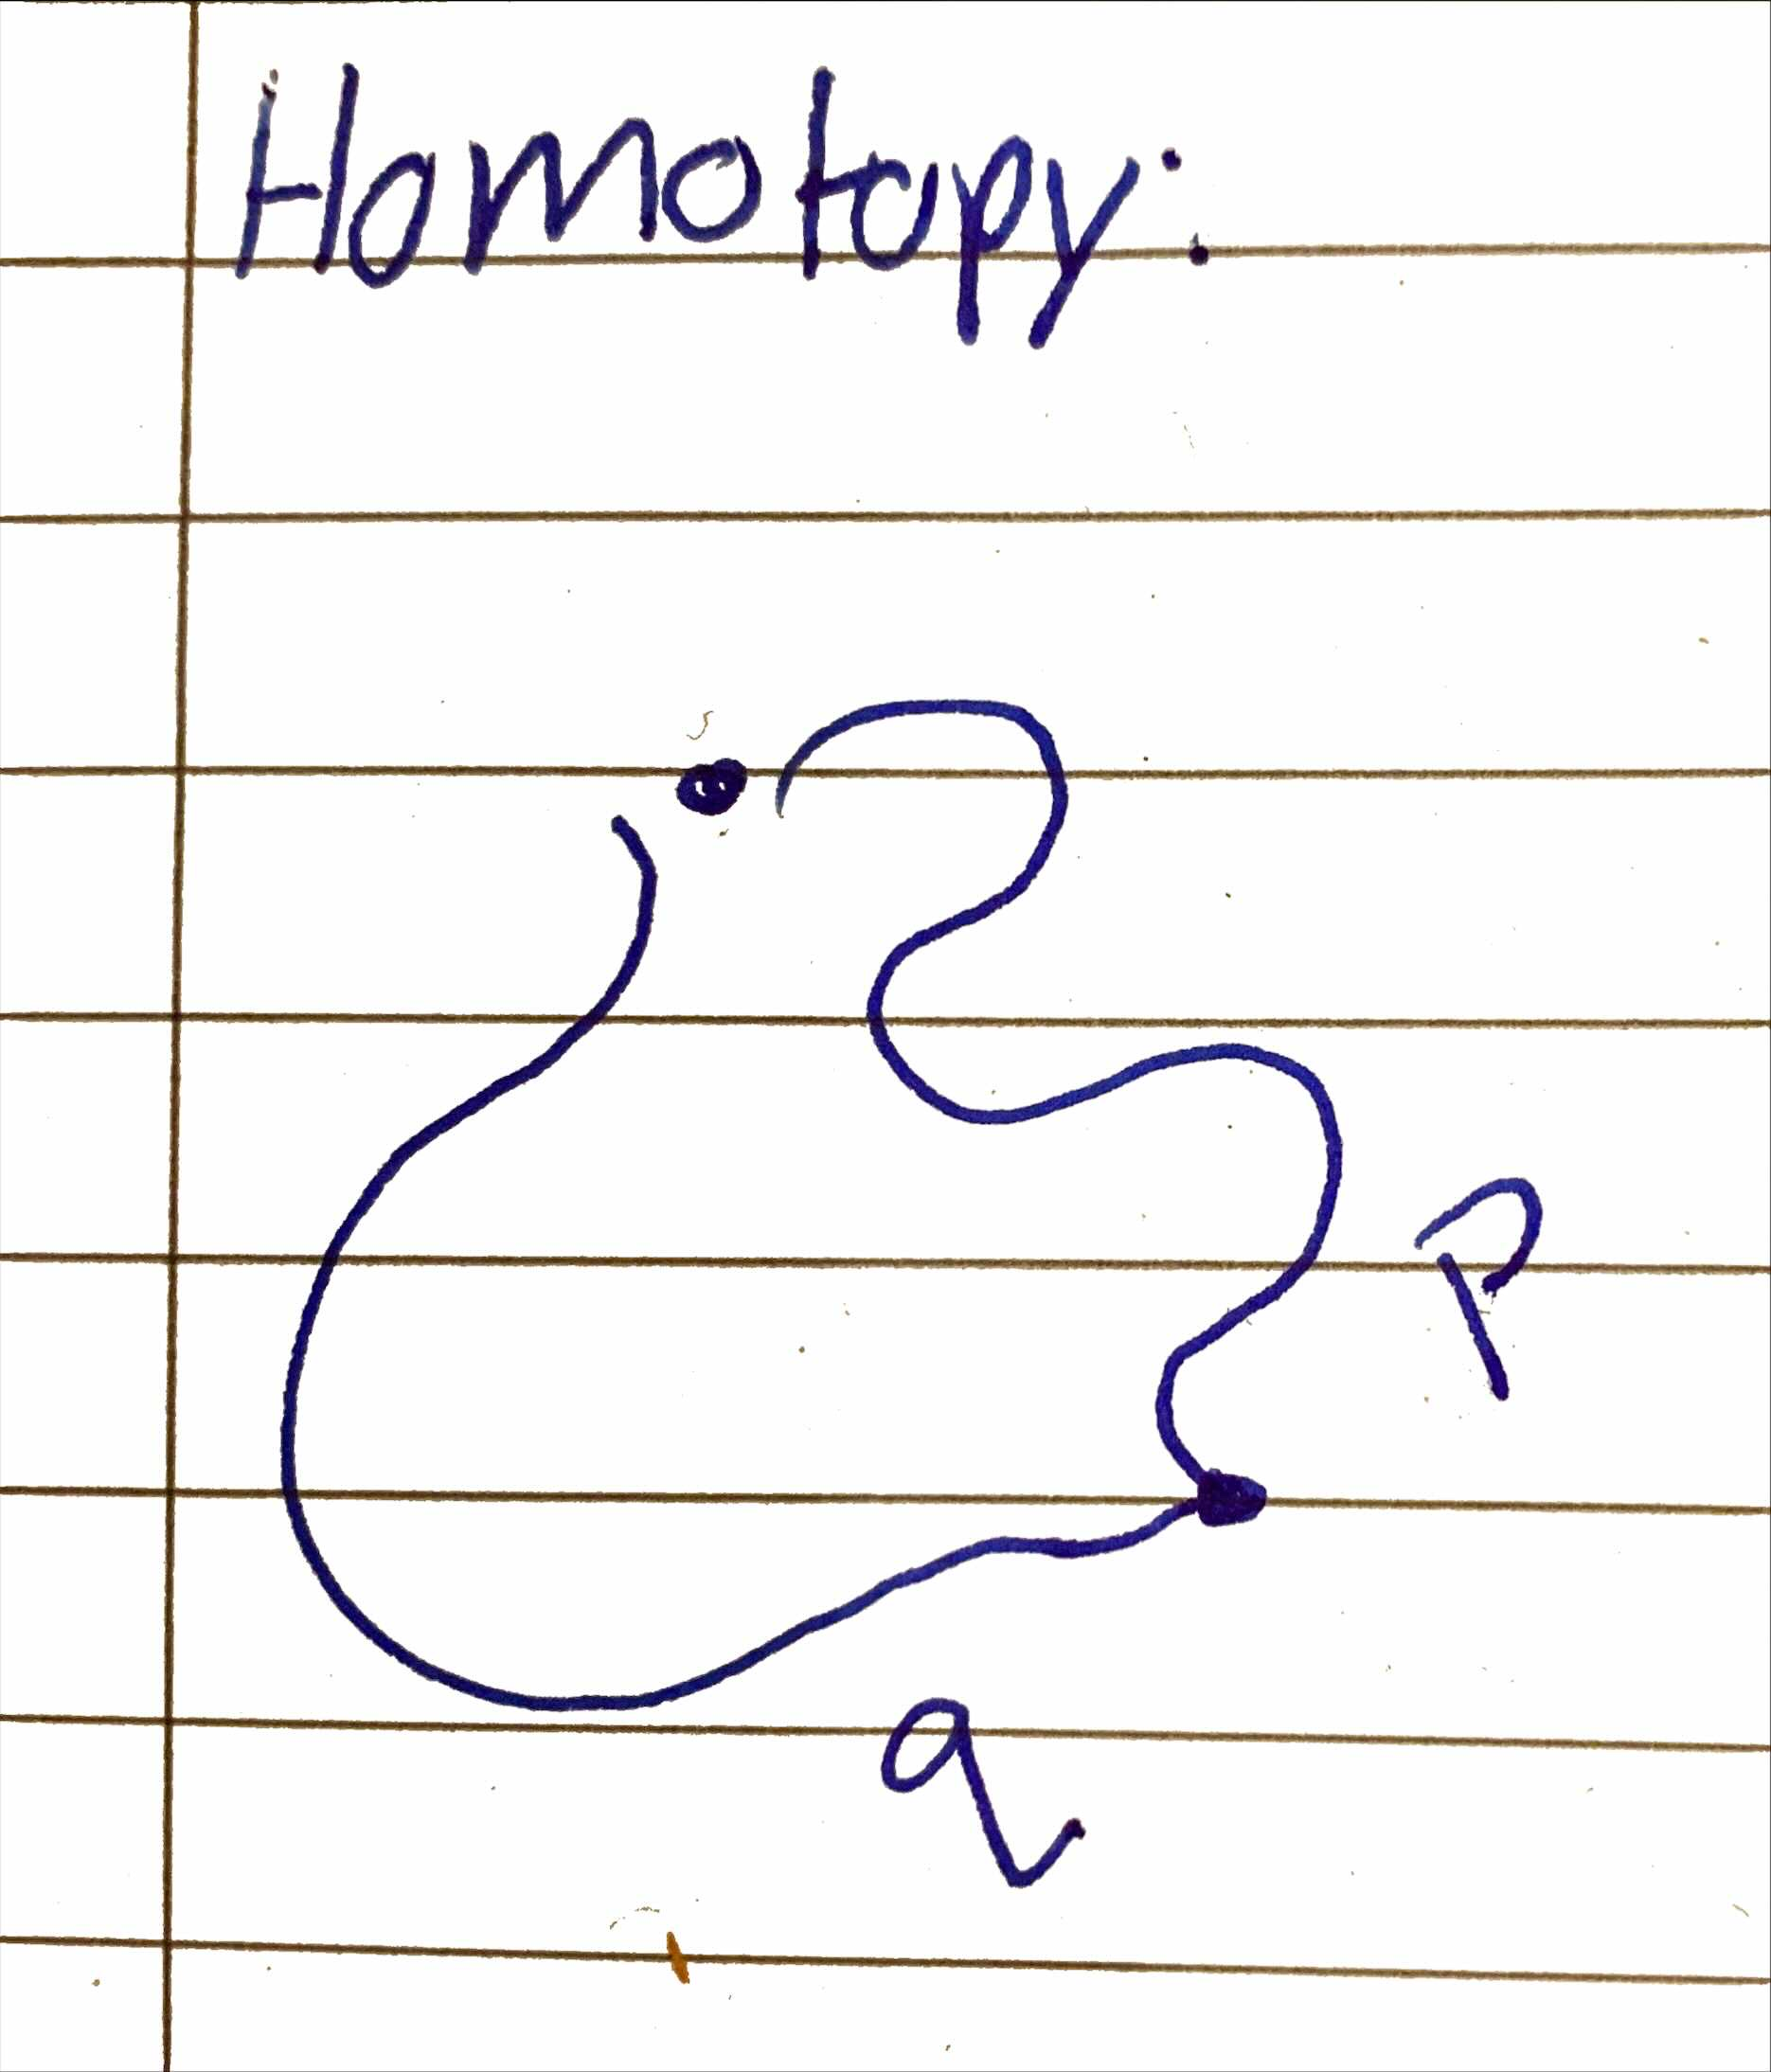 Homotopy:
P
q